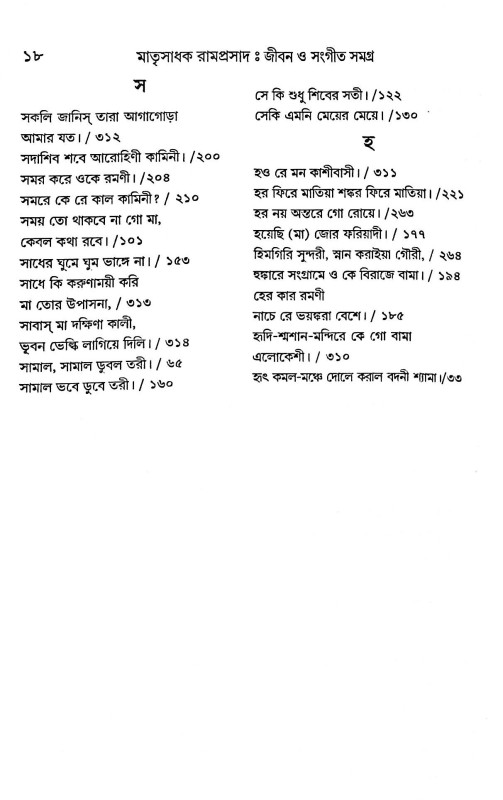 ১৮ মাতৃসাধক রামপ্রসাদ ঃ জীবন ও সংগীত সমগ্র
স
সকলি জানিস্ তারা আগাগোড়া
আমার যত। / ৩১২
সদাশিব শবে আরোহিণী কামিনী। /২০০
সমর করে ওকে রমণী। /২০৪
সমরে কে রে কাল কামিনী? / ২১০
সময় তো থাকবে না গো মা,
কেবল কথা রবে। /১০১
সাধের ঘুমে ঘুম ভাঙ্গে না। / ১৫৩
সাধে কি করুণাময়ী করি
মা তোর উপাসনা, / ৩১৩
সাবাস্ মা দক্ষিণা কালী,
ভুবন ভেল্কি লাগিয়ে দিলি। / ৩১৪
সামাল, সামাল ডুবল তরী। / ৬৫
সামাল ভবে ডুবে তরী। / ১৬০
সে কি শুধু শিবের সতী। /১২২
সেকি এমনি মেয়ের মেয়ে। /১৩০
হ
হও রে মন কাশীবাসী। / ৩১১
হর ফিরে মাতিয়া শঙ্কর ফিরে মাতিয়া। /২২১
হর নয় অন্তরে গো রোয়ে। /২৬৩
হয়েছি (মা) জোর ফরিয়াদী। / ১৭৭
হিমগিরি সুন্দরী, স্নান করাইয়া গৌরী, / ২৬৪
হুঙ্কারে সংগ্রামে ও কে বিরাজে বামা। / ১৯৪
হের কার রমণী
নাচে রে ভয়ঙ্করা বেশে। / ১৮৫
হৃদি-শ্মশান-মন্দিরে কে গো বামা
এলোকেশী। / ৩১০
হৃৎ কমল-মঞ্চে দোলে করাল বদনী শ্যামা।/৩৩